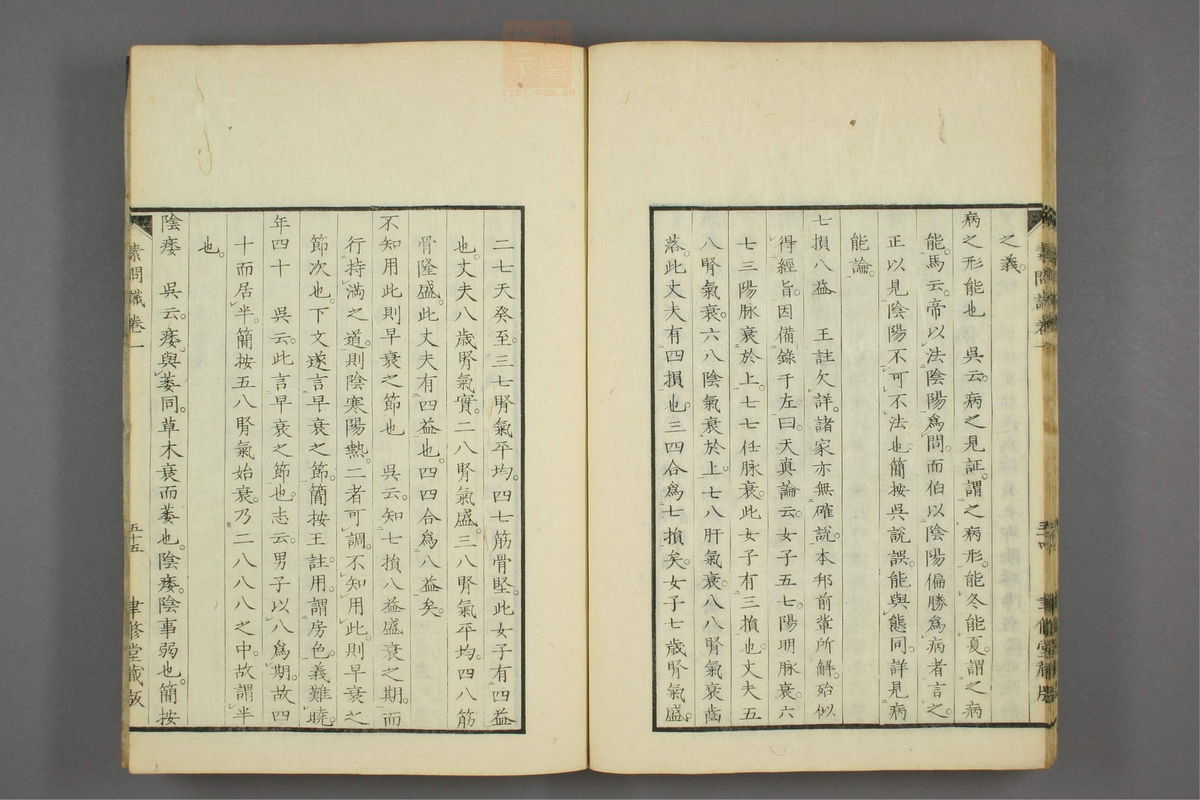 之義。
病之形能也　吳云。病之見証。謂之病形。能冬能夏。謂之病
能。馬云。帝以法陰陽爲問。而伯以陰陽偏勝爲病者言之。
正以見陰陽不可不法也。簡按吳說誤。能與態同。詳見病
能論。
七損八益　王註欠詳。諸家亦無確說。本邦前輩所解。殆似
得經旨。因備錄于左。曰。天眞論云。女子五七。陽明脉衰。六
七三陽脉衰於上。七七任脉衰。此女子有三損也。丈夫五
八腎氣衰。六八陰氣衰於上。七八肝氣衰。八八腎氣衰齒
落。此丈夫有四損也。三四合爲七損矣。女子七歲腎氣盛。
二七天癸至。三七腎氣平均。四七筋骨堅。此女子有四益
也。丈夫八歲腎氣實。二八腎氣盛。三八腎氣平均。四八筋
骨隆盛。此丈夫有四益也。四四合爲八益矣。
不知用此則早衰之節也　吳云。知七損八益盛衰之期。而
行持滿之道。則陰寒陽熱。二者可調。不知用此。則早衰之
節次也。下文遂言早衰之節。簡按王註。用。謂房色。義難曉。
年四十　吳云。此言早衰之節也。志云。男子以八爲期。故四
十而居半。簡按五八腎氣始衰。乃二八八八之中。故謂半
也。
陰痿　吳云。痿。與萎同。草木衰而萎也。陰痿。陰事弱也。簡按
素問識卷一
五十五
聿修堂藏版